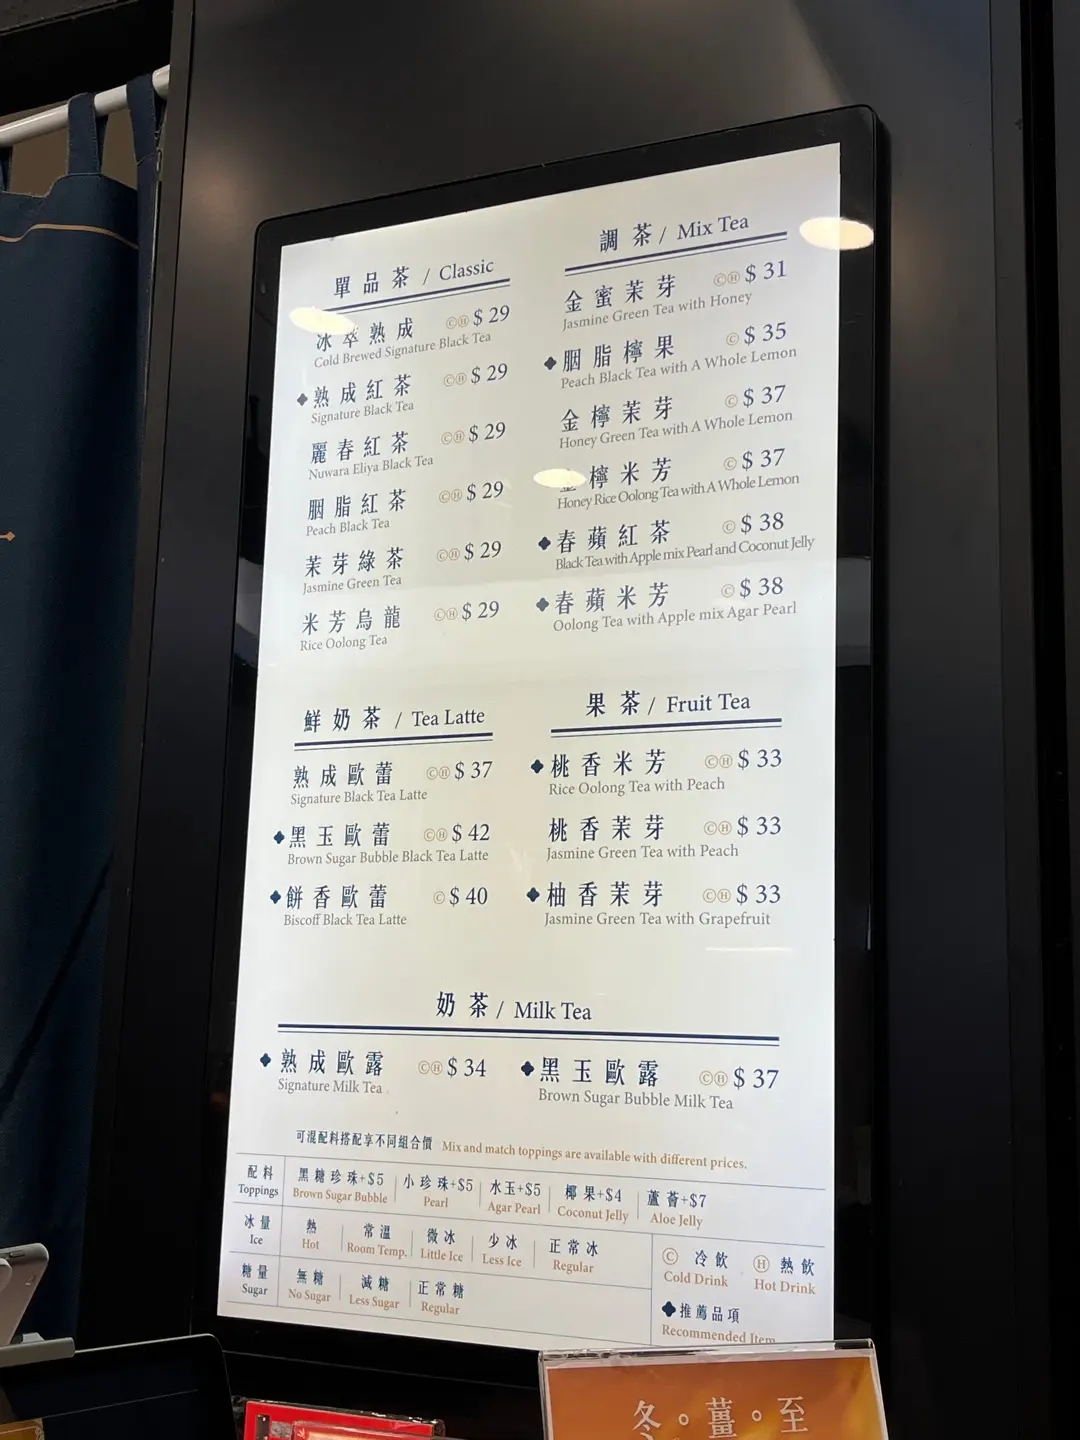 單品茶 / Classic
冰萃熟成 ⒸⒽ $ 29
Cold Brewed Signature Black Tea
熟成紅茶 ⒸⒽ $ 29
Signature Black Tea
麗春紅茶 ⒸⒽ $ 29
Nuwara Eliya Black Tea
胭脂紅茶 ⒸⒽ $ 29
Peach Black Tea
茉芽綠茶 ⒸⒽ $ 29
Jasmine Green Tea
米芳烏龍 ⒸⒽ $ 29
Rice Oolong Tea
調茶 / Mix Tea
金蜜茉芽 ⒸⒽ $ 31
Jasmine Green Tea with Honey
胭脂檸果 Ⓒ $ 35
Peach Black Tea with A Whole Lemon
金檸茉芽 Ⓒ $ 37
Honey Green Tea with A Whole Lemon
金檸米芳 Ⓒ $ 37
Honey Rice Oolong Tea with A Whole Lemon
春蘋紅茶 Ⓒ $ 38
Black Tea with Apple mix Pearl and Coconut Jelly
春蘋米芳 Ⓒ $ 38
Oolong Tea with Apple mix Agar Pearl
鮮奶茶 / Tea Latte
熟成歐蕾 ⒸⒽ $ 37
Signature Black Tea Latte
黑玉歐蕾 ⒸⒽ $ 42
Brown Sugar Bubble Black Tea Latte
餅香歐蕾 Ⓒ $ 40
Biscoff Black Tea Latte
果茶 / Fruit Tea
桃香米芳 ⒸⒽ $ 33
Rice Oolong Tea with Peach
桃香茉芽 ⒸⒽ $ 33
Jasmine Green Tea with Peach
柚香茉芽 ⒸⒽ $ 33
Jasmine Green Tea with Grapefruit
奶茶 / Milk Tea
熟成歐露 ⒸⒽ $ 34
Signature Milk Tea
黑玉歐露 ⒸⒽ $ 37
Brown Sugar Bubble Milk Tea
可混配料搭配享不同組合價 Mix and match toppings are available with different prices.
配料 黑糖珍珠+$5 小珍珠+$5 水玉+$5 椰果+$4 蘆薈+$7
Toppings Brown Sugar Bubble Pearl Agar Pearl Coconut Jelly Aloe Jelly
冰量 熱 常溫 微冰 少冰 正常冰
Ice Hot Room Temp. Little Ice Less Ice Regular
糖量 無糖 減糖 正常糖
Sugar No Sugar Less Sugar Regular
Ⓒ 冷飲 Ⓗ 熱飲
Cold Drink Hot Drink
推薦品項
Recommended Item
冬。薑。至